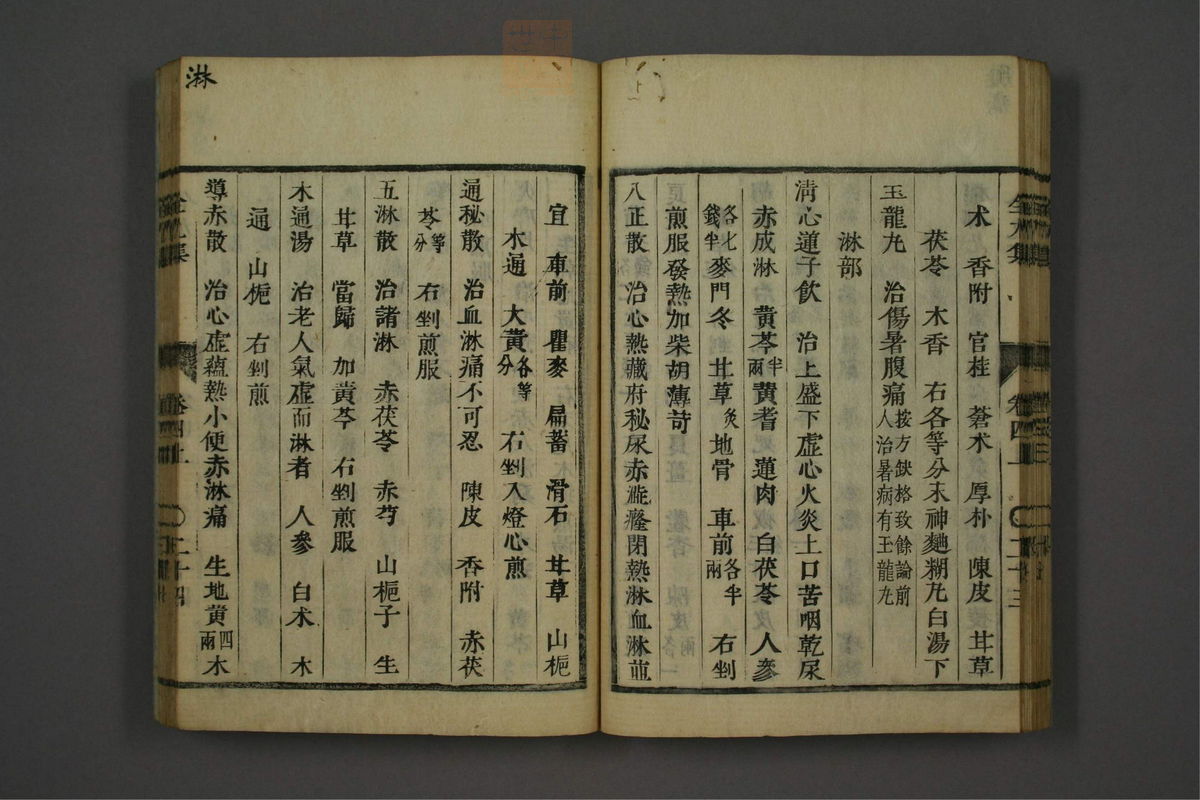 术　香附　官桂　蒼术　厚朴　陳皮　甘草
茯苓　木香　右各等分末神麯糊丸白湯下
玉龍丸　治傷暑腹痛按方缺格致餘論前人治暑病有玉龍丸
淋部
清心蓮子飲　治上盛下虛心火炎上口苦咽乾尿
赤成淋　黄芩半兩黄耆　蓮肉　白茯苓　人參
各七錢半麥門冬　甘草炙地骨　車前各半兩　右剉
煎服發熱加柴胡薄苛
八正散　治心熱藏府秘尿赤澁癃閉熱淋血淋並
宜　車前　瞿麥　扁蓄　滑石　甘草　山梔
木通　大黄各等分　右剉入燈心煎
通秘散　治血淋痛不可忍　陳皮　香附　赤茯
苓等分　右剉煎服
五淋散　治諸淋　赤茯苓　赤芍　山梔子　生
甘草　當歸　加黄芩　右剉煎服
木通湯　治老人氣虛而淋者　人參　白术　木
通　山梔　右剉煎
導赤散　治心虛蘊熱小便赤淋痛　生地黄四兩木
淋
卷四上
二十三
卷四上
二十四